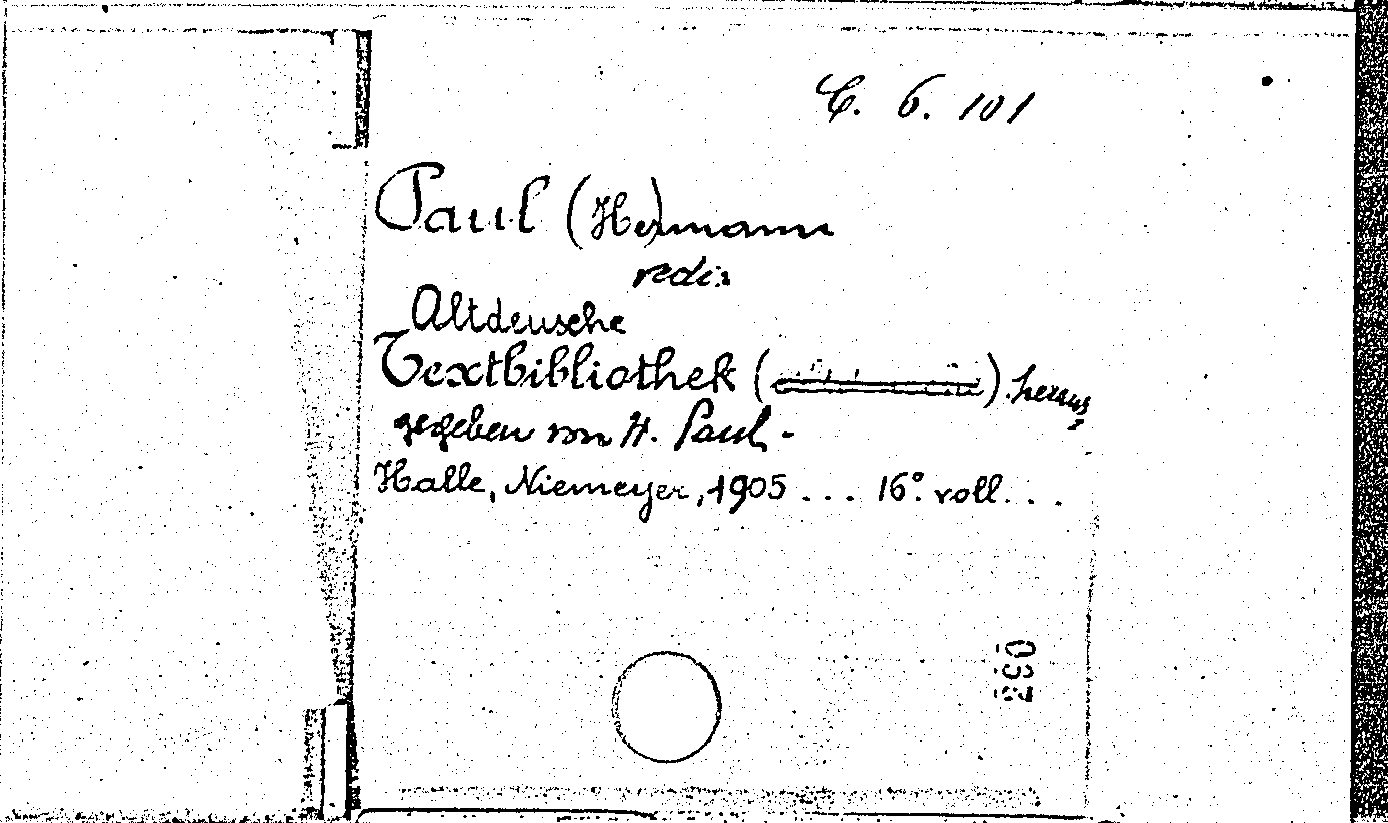 C. 6. 101
Paul (He)rmann
redi.
Altdeusche
Textbibliothek ( ) heraus
gegeben von H. Paul.
Halle, Niemeyer, 1905 ... 16° voll...